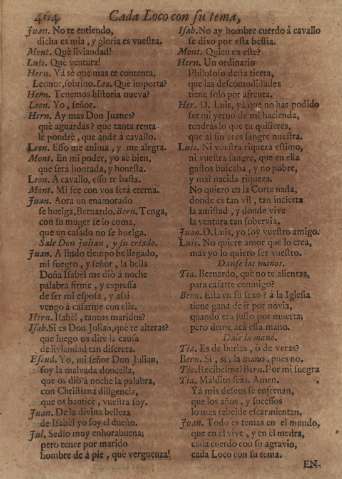 404 Cada Loco con su tema,
Juan. No te entiendo,
dicha es mia, y gloria es vuestra.
Mont. Què liviandad!
Luis. Què ventura!
Hern. Ya sè que mas te contenta,
Leonor, sobrino. Leo. Que importa?
Hern. Tenemos historia nueva?
Leon. Yo, señor.
Hern. Ay mas Don Juanes?
què aguardas? que tanta renta
le pondrè, que ande à cavallo.
Leon. Esso me anima, y me alegra.
Mont. En mi poder, yo sè bien,
que serà honrada, y honesta.
Leon. A cavallo, esso te basta.
Mont. Mi fee con vos serà eterna.
Juan. Aora un enamorado
se huelga, Bernardo. Hern. Tenga,
con su muger te lo coma,
que un casado no se huelga.
Sale Don Julian, y su criado.
Juan. A lindo tiempo he llegado,
mi suegro, y señor, la bella
Doña Isabel me diò à noche
palabra firme, y expressa
de ser mi esposa, y assi
vengo à casarme con ella.
Hern. Isabel, tantos maridos?
Isab. Si es Don Julian, que te alteras?
que luego os dire la causa
de liviandad tan discreta.
Escud. Yo, mi señor Don Julian,
soy la malvada doncella,
que os diò à noche la palabra,
con Christiana diligencia,
que os bautice, vuestra soy.
Juan. De la divina belleza
de Isabel yo soy el dueño.
Jul. Sedlo muy enhorabuena;
pero tener por marido
hombre de à pie, què verguenza!
Isab. No ay hombre cuerdo à cavallo
se dixo por esta bestia.
Mont. Quien es este?
Hern. Un ordinario
Philosofo desta tierra,
que las descomodidades
tiene solo por afrenta.
Her. D. Luis, ya que no has podido
ser mi yerno de mi hacienda,
tendràs lo que tu quisieres,
que al fin eres sangre nuestra.
Luis. Ni vuestra riqueza estimo,
ni vuestra sangre, que en ella
gustos buscaba, y no pobre,
y mal nacida riqueza.
No quiero en la Corte nada,
donde es tan vil, tan incierta
la amistad, y donde vive
la ventura tan sobervia.
Juan. D. Luis, yo soy vuestro amigo.
Luis. No quiere amor que lo crea,
mas yo lo quiero ser vuestro.
Danse las manos.
Tia. Bernardo, què no te alientas,
para casarte conmigo?
Bern. Esta en su sexo à la Iglesia
tiene gana de ir por novia,
quando era justo por muerta;
pero demte acà essa mano.
Dale la mano.
Tia. Es de burlas, ò de veras?
Bern. Si, si, la mano, pues no.
Tia. Recibeisme? Bern. Por mi suegra
Tia. Maldito seas. Amen.
Ya mis deseos se enfrenan,
que los años, y sucessos
lo mas rebelde escarmientan.
Juan. Todo es temas en el mundo,
que en el vive, y en el medra,
cada cuerdo con su agravio,
cada Loco con su tema.
EN-